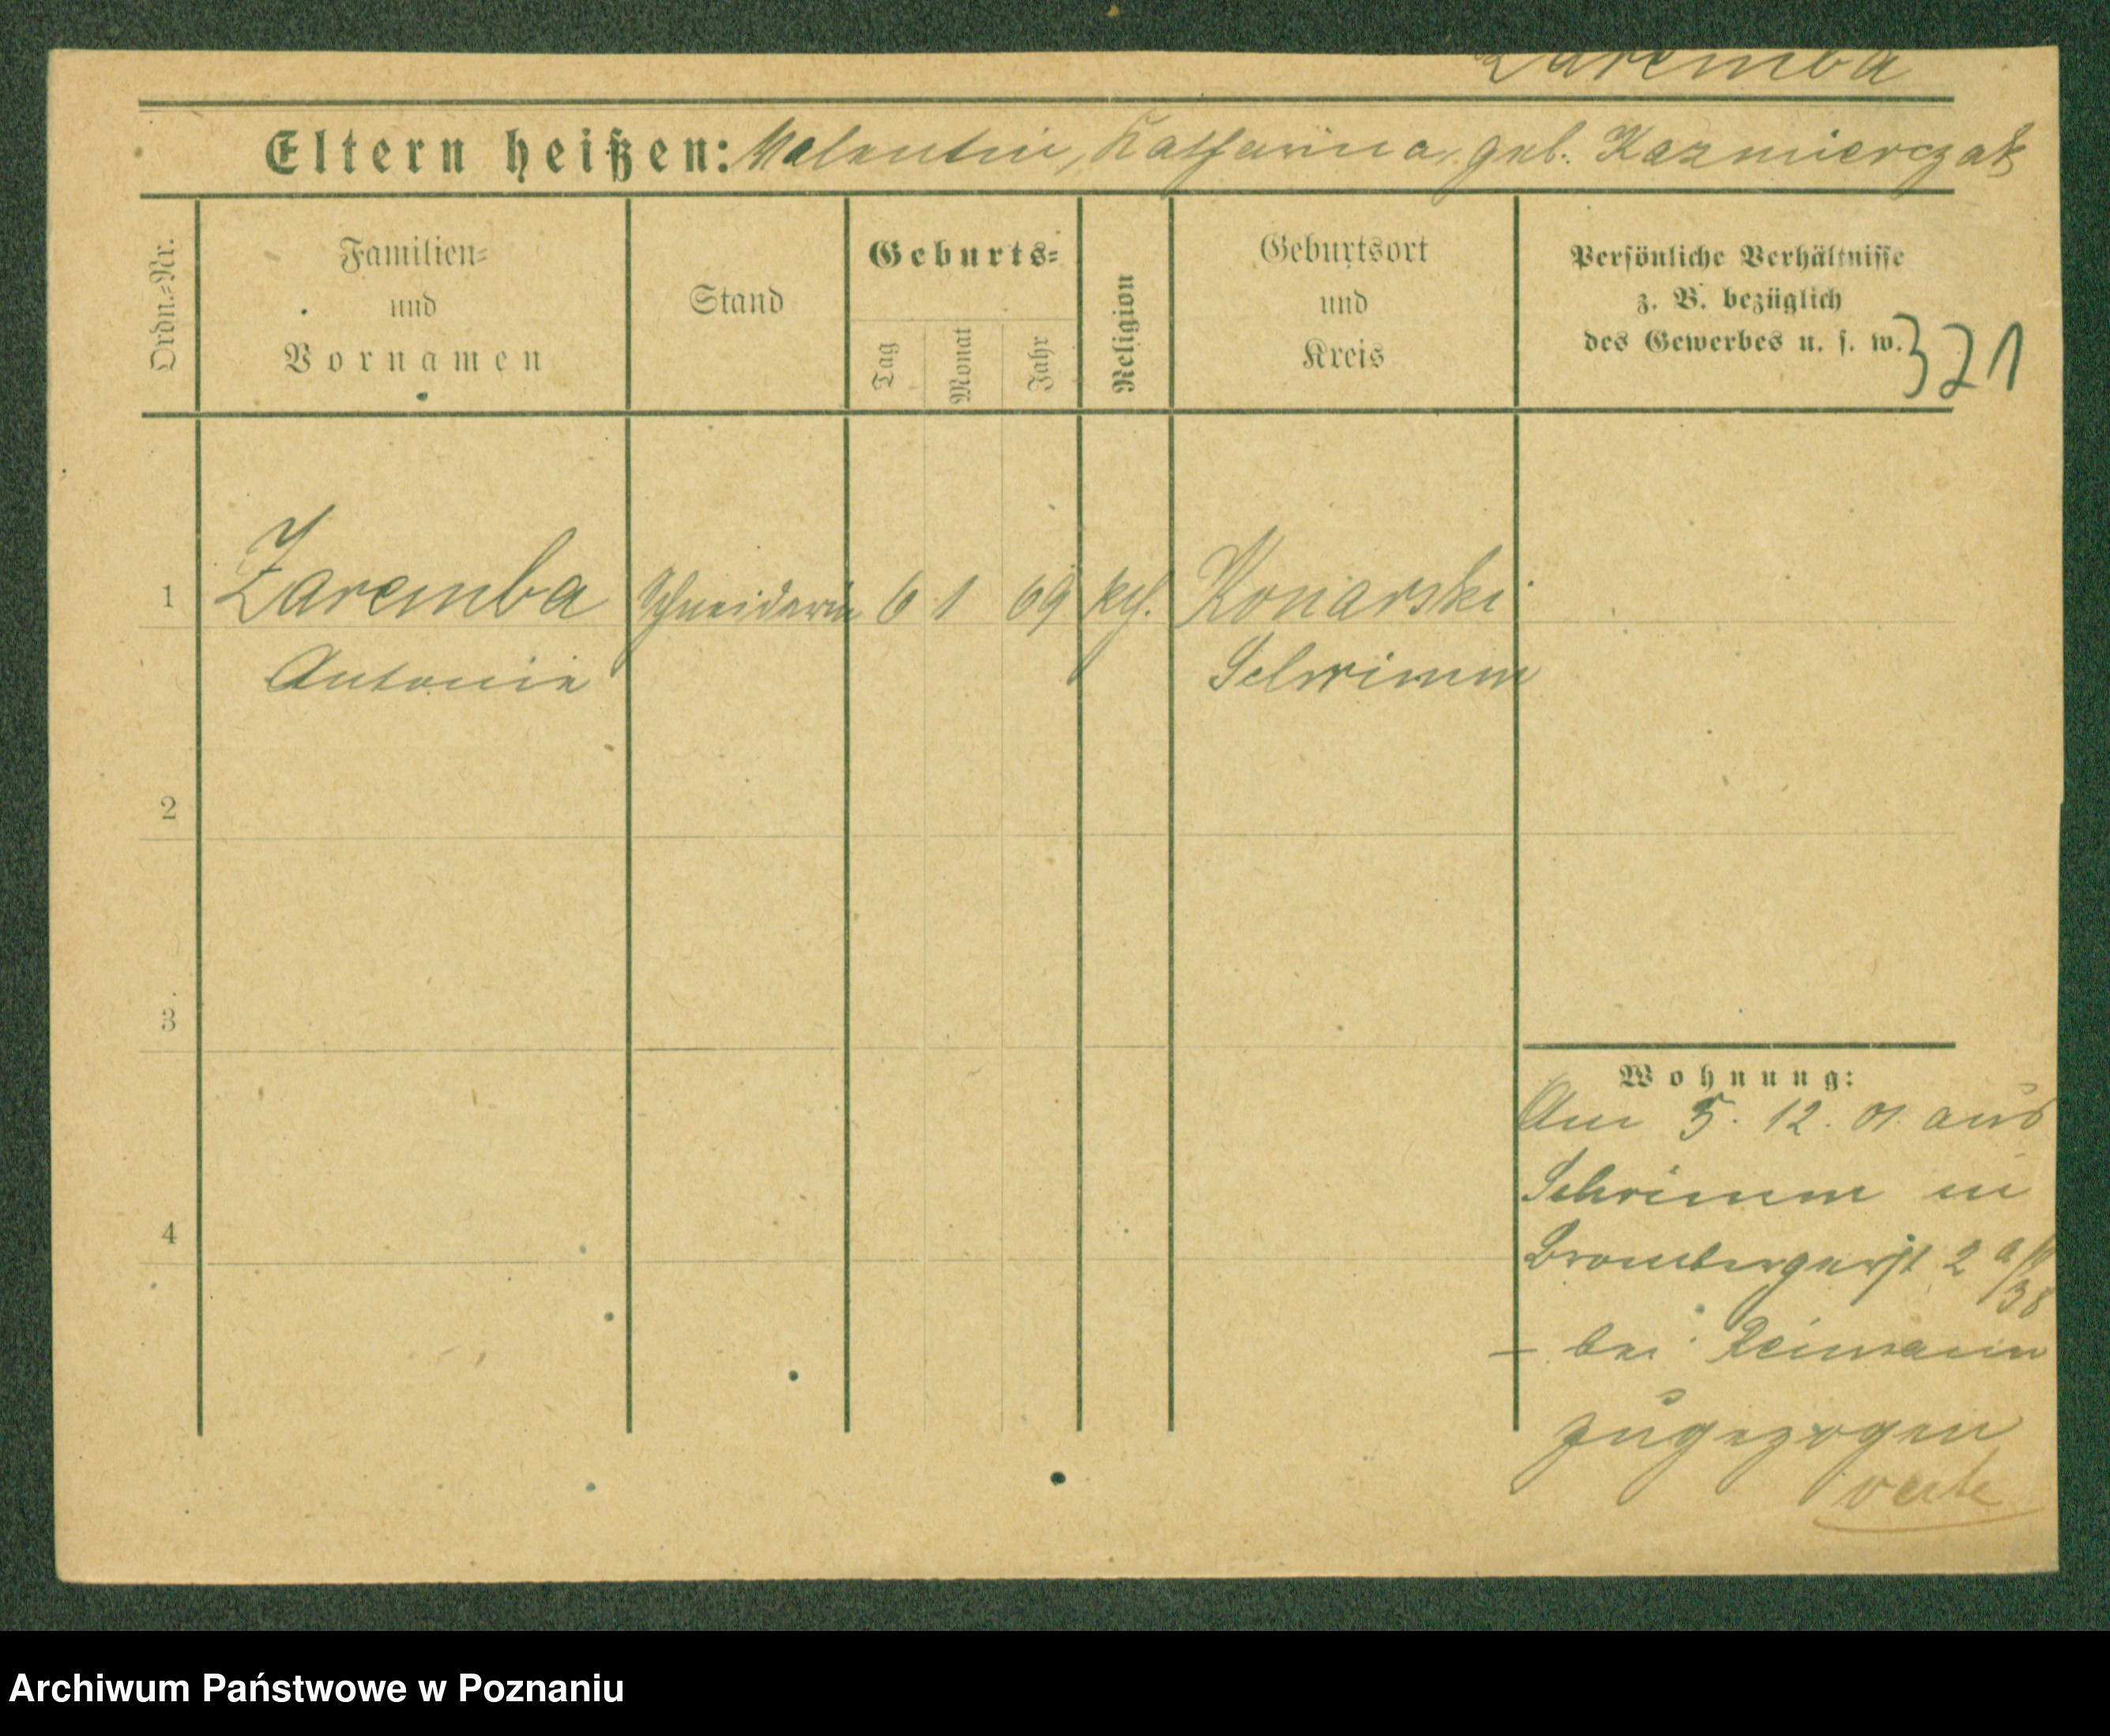 Zaremba
Eltern heißen: Valentin, Katharina, geb. Kazmierczak
Ordn.=Nr.
Familien=
und
Vornamen
Stand
Geburts=
Tag
Monat
Jahr
Religion
Geburtsort
und
Kreis
Persönliche Verhältnisse
z. B. bezüglich
des Gewerbes u. s. w.
321
1 Zaremba Schneiderin 6 1 69 kath. Konarski
Antonie Schrimm
2
3
4
Wohnung:
Am 5. 12. 01 aus
Schrimm in
Brombergerst 2 a/38
– bei Reimann
zugezogen
verte
Archiwum Państwowe w Poznaniu